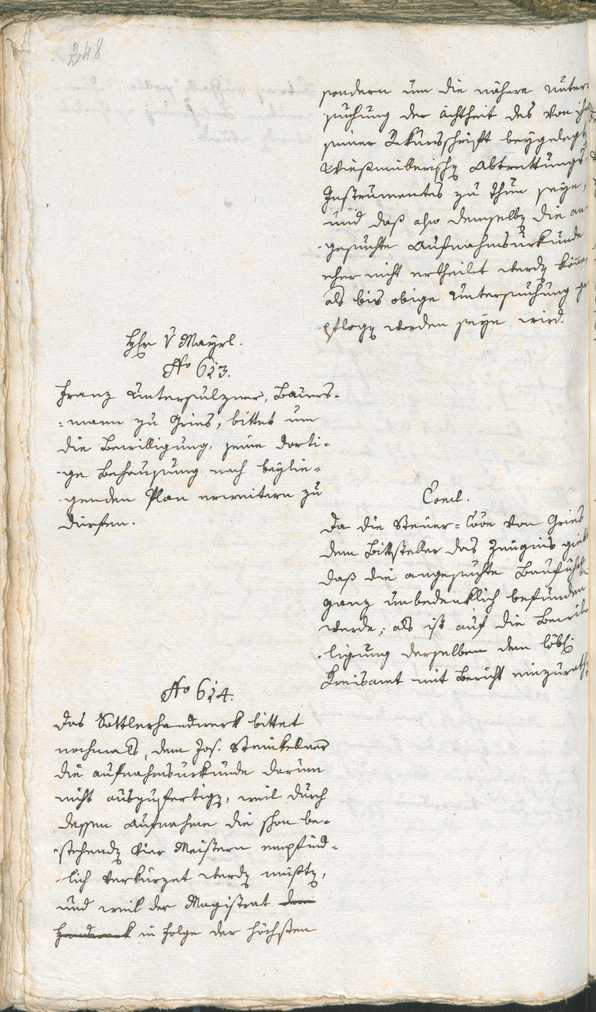 248
sondern um die nähere Unter-
suchung der ächtheit des von ihm
seiner Rekursschrift beygelegten
Abtrettungs
Instrumentes zu thun seye,
und daß also demselben die an-
gesuchte Aufnahmsurkunde
eher nicht ertheilet werden könne,
als bis obige Untersuchung ge-
pflogen worden seyn wird.
Hr. v Mayrl.
No 613.
Franz Untersulzner, Bauers-
mann zu Gries, bittet um
die Bewilligung, seine dorti-
ge Behausung nach beylie-
genden Plan erweitern zu
dürfen.
Concl.
Da die Steuer-Coon von Gries
dem Bittsteller das Zeugnis giebt
daß die angesuchte Bauführ
ganz unbedenklich befunden
werde; als ist auf die Bewil-
ligung derselben dem löbl.
Kreisamt mit Bericht einzurathen
No 614.
Das Sattlerhandwerk bittet
nochmals, dem Jos. Steinkellner
die Aufnahmsurkunde darum
nicht auszufertigen, weil durch
dessen Aufnahme die schon be-
stehenden vier Meistern empfind-
lich verkürzet werden müßten,
und weil der Magistrat dem
Handwerk in Folge der höchsten